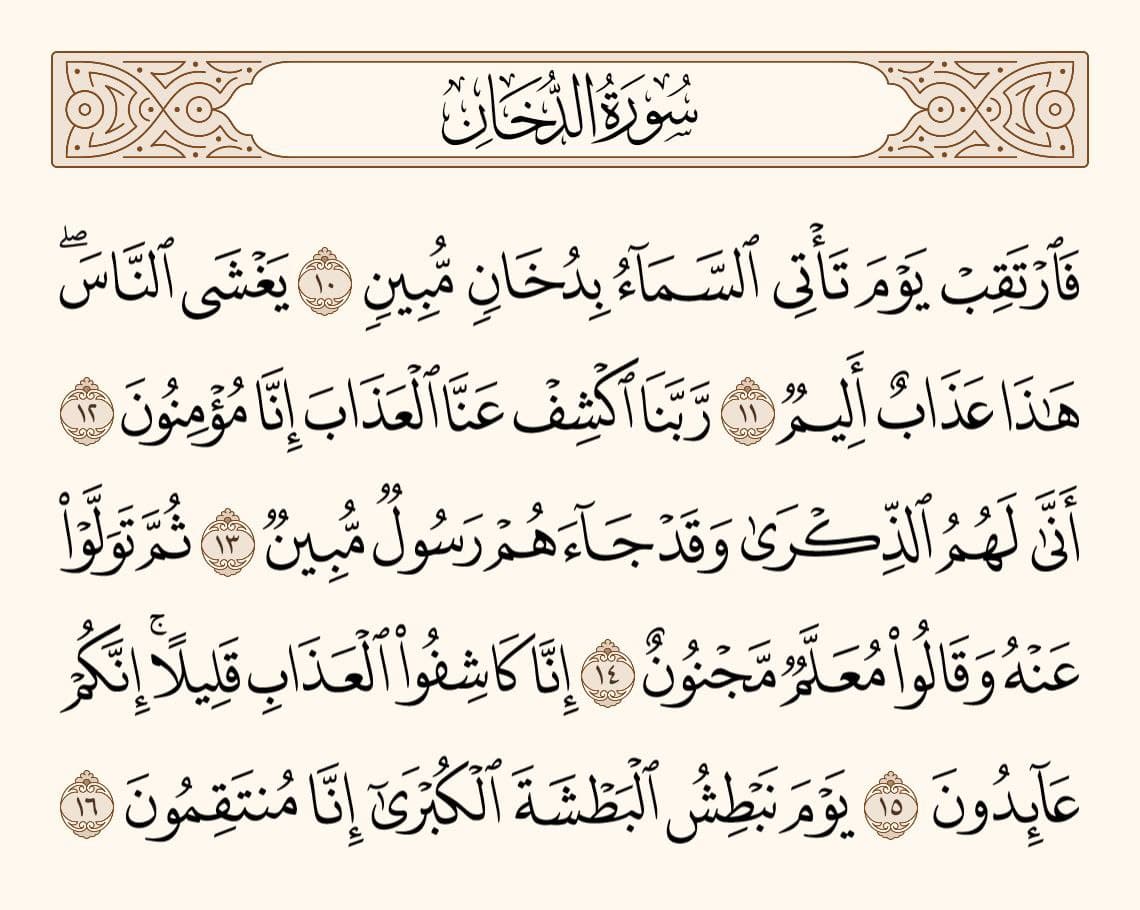 سُورَةُ الدُّخَانِ
فَٱرْتَقِبْ يَوْمَ تَأْتِى ٱلسَّمَآءُ بِدُخَانٍ مُّبِينٍ ١٠ يَغْشَى ٱلنَّاسَۖ
هَٰذَا عَذَابٌ أَلِيمٌ ١١ رَّبَّنَا ٱكْشِفْ عَنَّا ٱلْعَذَابَ إِنَّا مُؤْمِنُونَ ١٢
أَنَّىٰ لَهُمُ ٱلذِّكْرَىٰ وَقَدْ جَآءَهُمْ رَسُولٌ مُّبِينٌ ١٣ ثُمَّ تَوَلَّوْا۟
عَنْهُ وَقَالُوا۟ مُعَلَّمٌ مَّجْنُونٌ ١٤ إِنَّا كَاشِفُوا۟ ٱلْعَذَابِ قَلِيلًاۚ إِنَّكُمْ
عَآئِدُونَ ١٥ يَوْمَ نَبْطِشُ ٱلْبَطْشَةَ ٱلْكُبْرَىٰٓ إِنَّا مُنتَقِمُونَ ١٦